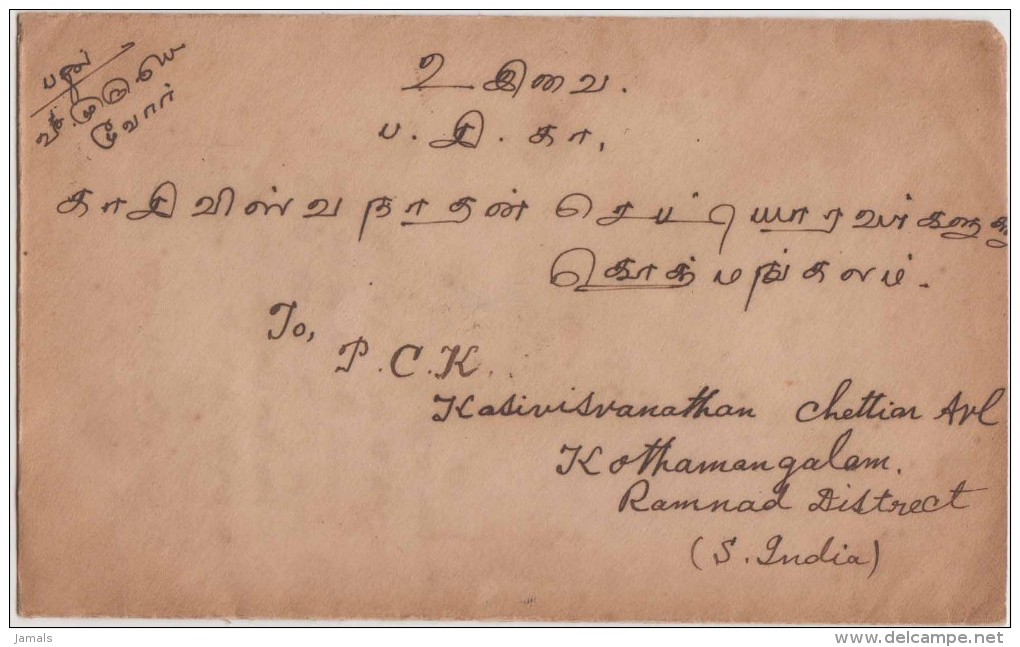 உ இவை.
ப. சி. கா,
காசிவிஸ்வநாதன் செட்டியாரவர்களுக்கு
கொத்தமங்கலம்.
To,
P.C.K.
Kasivisvanathan Chettiar Avl
Kothamangalam.
Ramnad Distrect
(S. India)
Jamals
www.delcampe.net